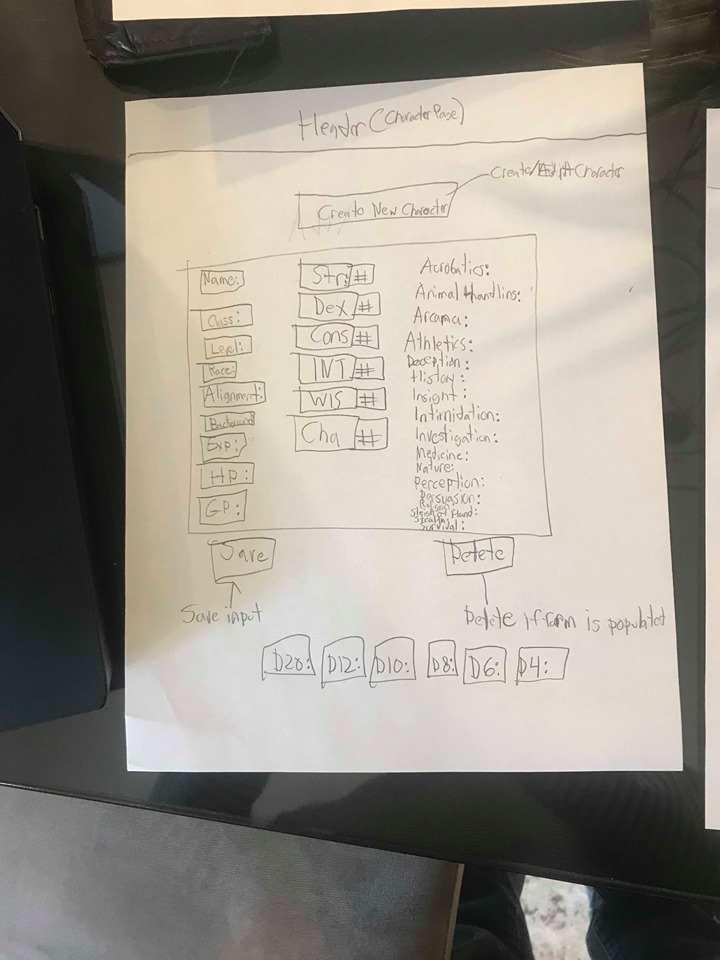 Header (Character Page)
Create New Character
Create/ Character
Name:
Class:
Level:
Race:
Alignment:
Background
Exp:
HP:
GP:
Str: #
Dex #
Cons #
INT #
WIS #
Cha #
Acrobatics:
Animal Handling:
Arcana:
Athletics:
Deception:
History:
Insight:
Intimidation:
Investigation:
Medicine:
Nature:
Perception:
Persuasion:
Sleight of Hand:
Stealth:
Survival:
Save
Delete
Save input
Delete if form is populated
D20: D12: D10: D8: D6: D4: